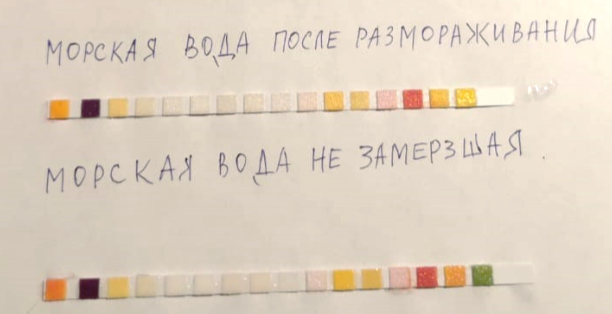 МОРСКАЯ ВОДА ПОСЛЕ РАЗМОРАЖИВАНИЯ
МОРСКАЯ ВОДА НЕ ЗАМЕРЗШАЯ.